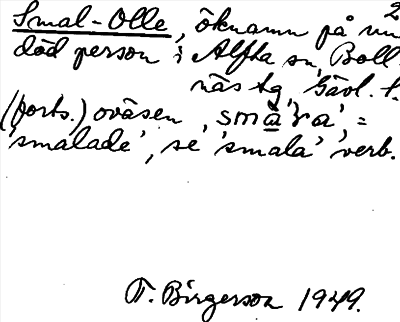 2
Smal-Olle, öknamn på nu
död person i Alfta sn, Boll-
näs tg, Gävl. l.
(forts.) oväsen, sma̲ra, =
'smalade', se 'smala' verb.
T. Birgerson 1949.